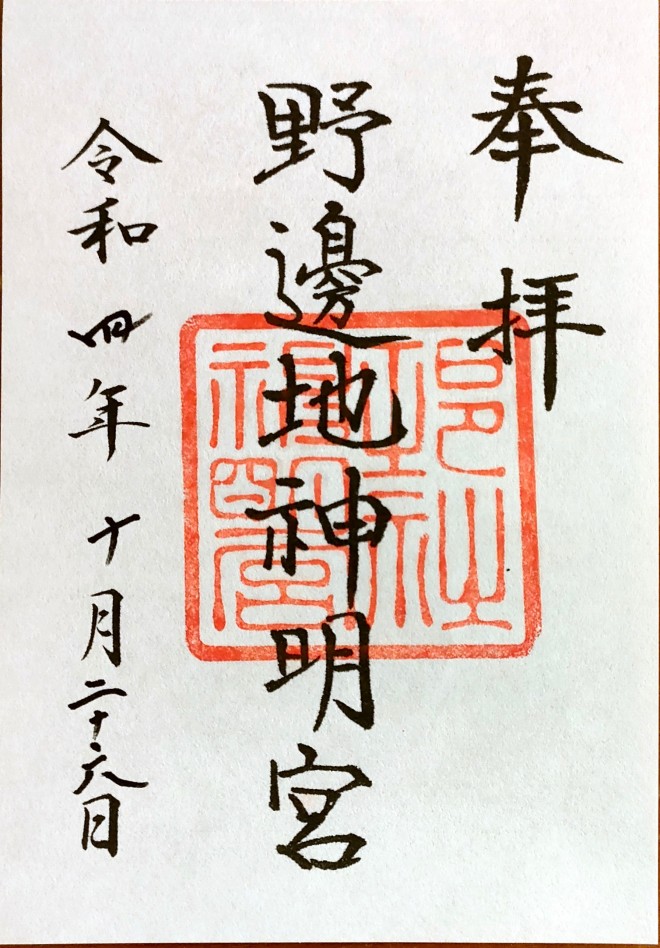 奉拝
野邊地神明宮
令和四年十月二十六日